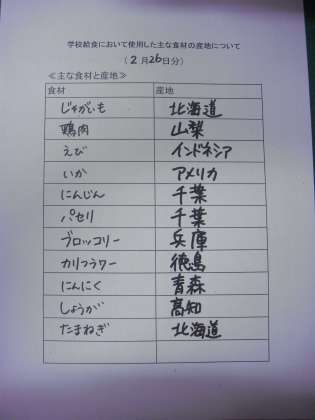 学校給食において使用した主な食材の産地について
(2月26日分)
≪主な食材と産地≫
食材 産地
じゃがいも 北海道
鶏肉 山梨
えび インドネシア
いか アメリカ
にんじん 千葉
パセリ 千葉
ブロッコリー 兵庫
カリフラワー 徳島
にんにく 青森
しょうが 高知
たまねぎ 北海道